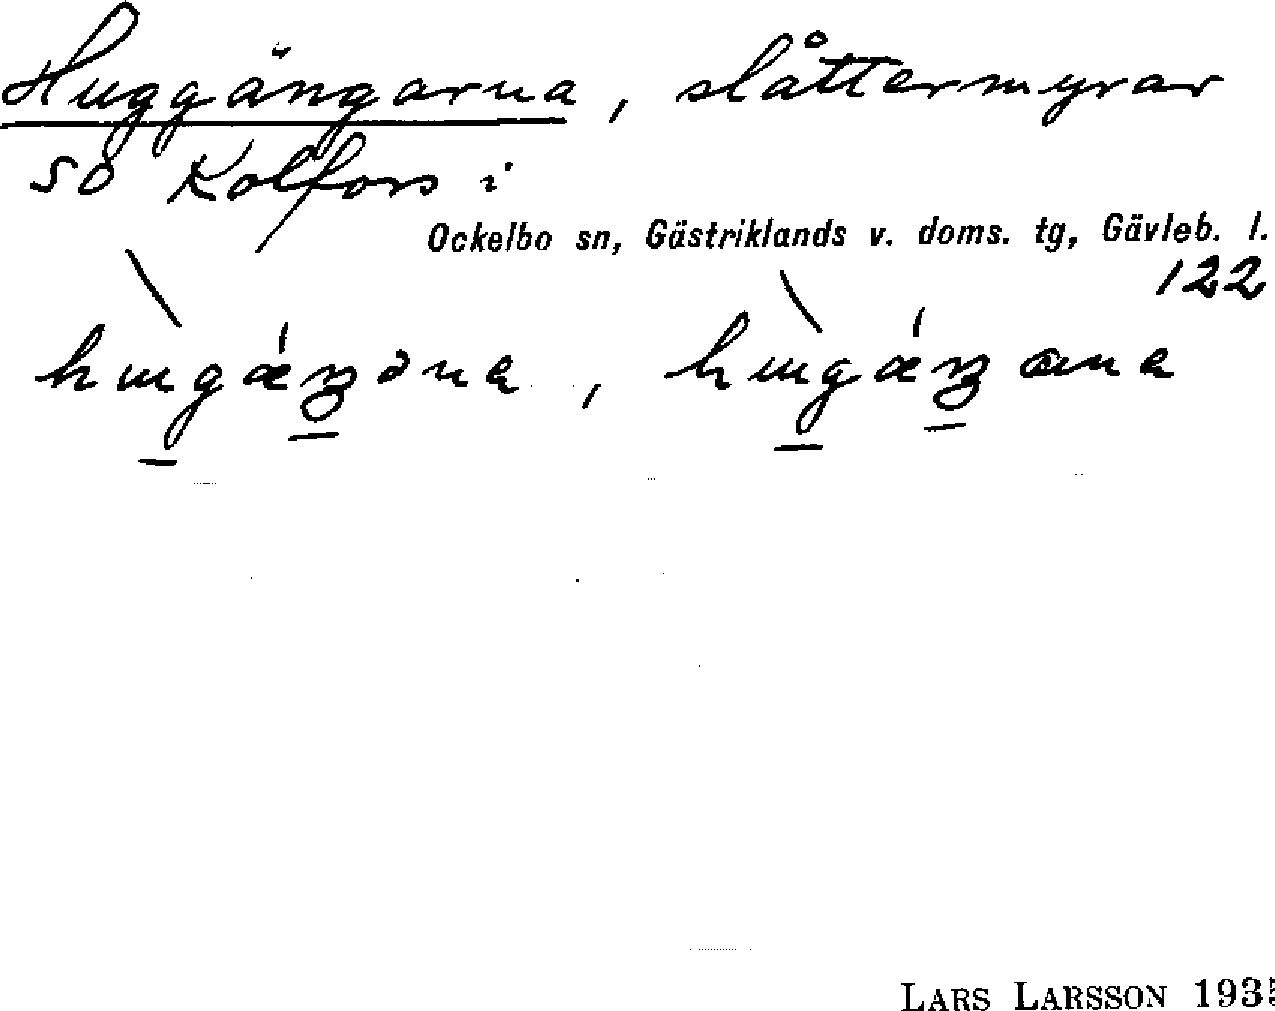 Huggängarna, slåttermyrar
SO Kolfors i
Ockelbo sn, Gästriklands v. doms. tg, Gävleb. l.
122
LARS LARSSON